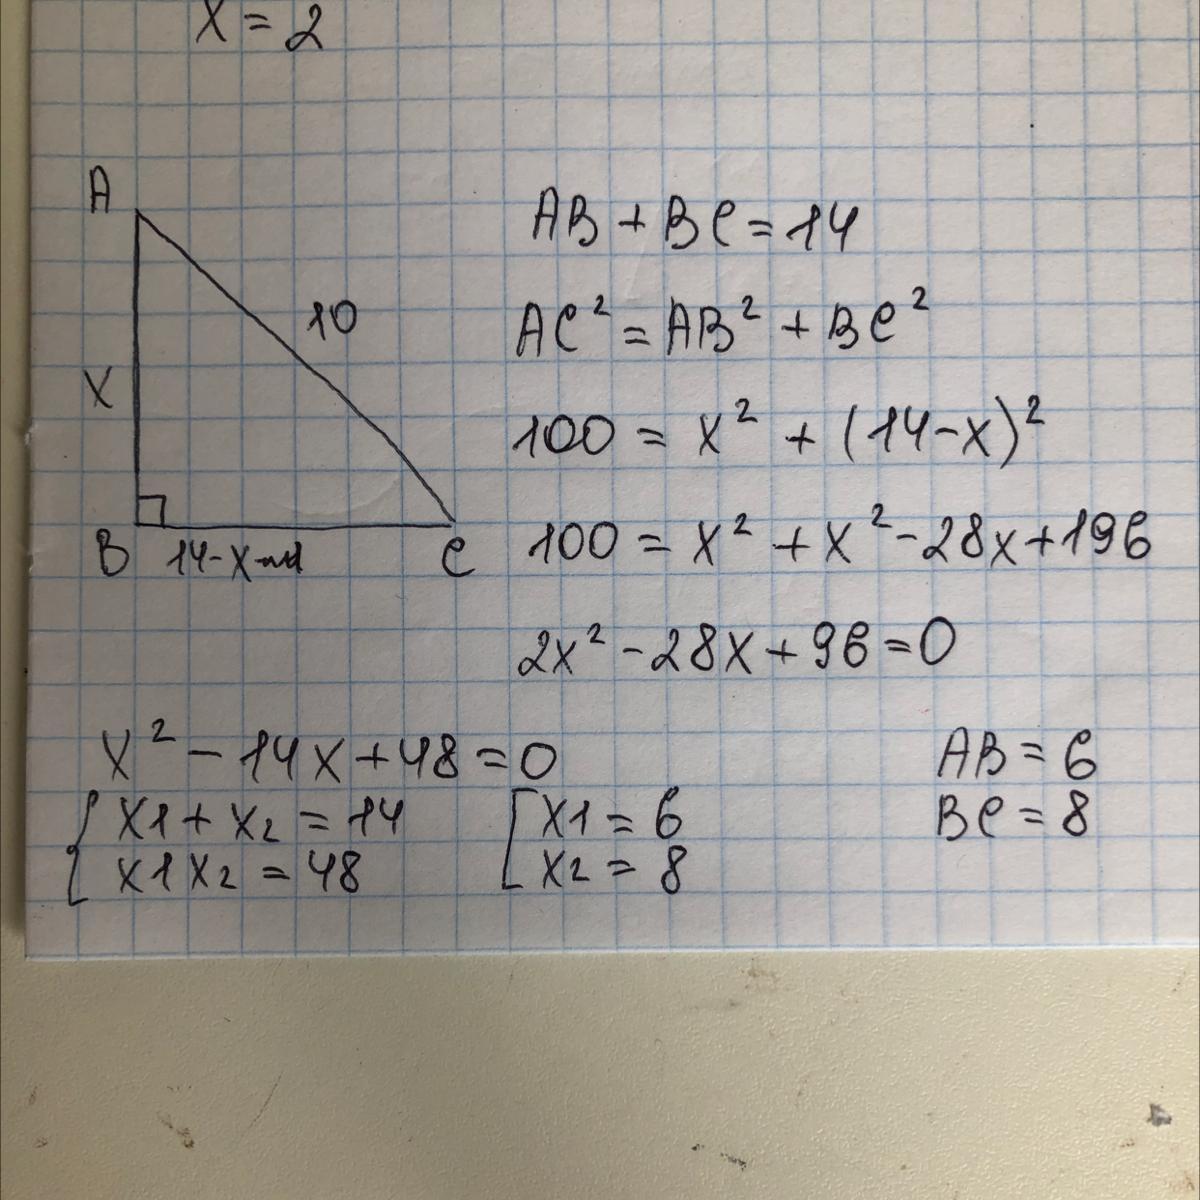 x = 2
A
AB + BC = 14
10
AC² = AB² + BC²
x
100 = x² + (14-x)²
B 14-x C
100 = x² + x² - 28x + 196
2x² - 28x + 96 = 0
x² - 14x + 48 = 0
{ x1 + x2 = 14
x1x2 = 48
[ x1 = 6
x2 = 8
AB = 6
BC = 8